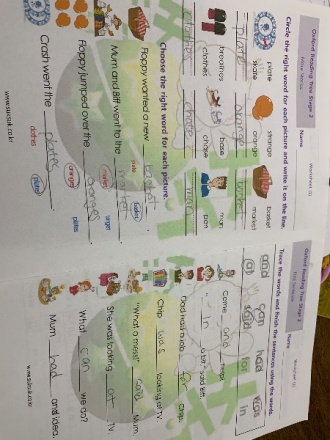 Oxford Reading Tree Stage 2
Name
Circle the right word for each picture and write it on the line.
plate
skate
orange
strange
basket
market
plate
orange
clothes
base
man
pan
clothes
chase
man
Choose the right word for each picture.
Floppy wanted a new basket
Mum and Biff went to the market
Floppy jumped over the oranges
Crash went the plates
clothes
oranges
plates
Oxford Reading Tree Stage 2
Name
Trace the words and finish the sentences using the words.
and can had was
at said for in
Come and help
in a bit," said Biff.
Dad had a job for
Chip was looking at TV.
"What a mess!" said Mum.
She was looking at TV.
What can we do?
Mum had and idea.